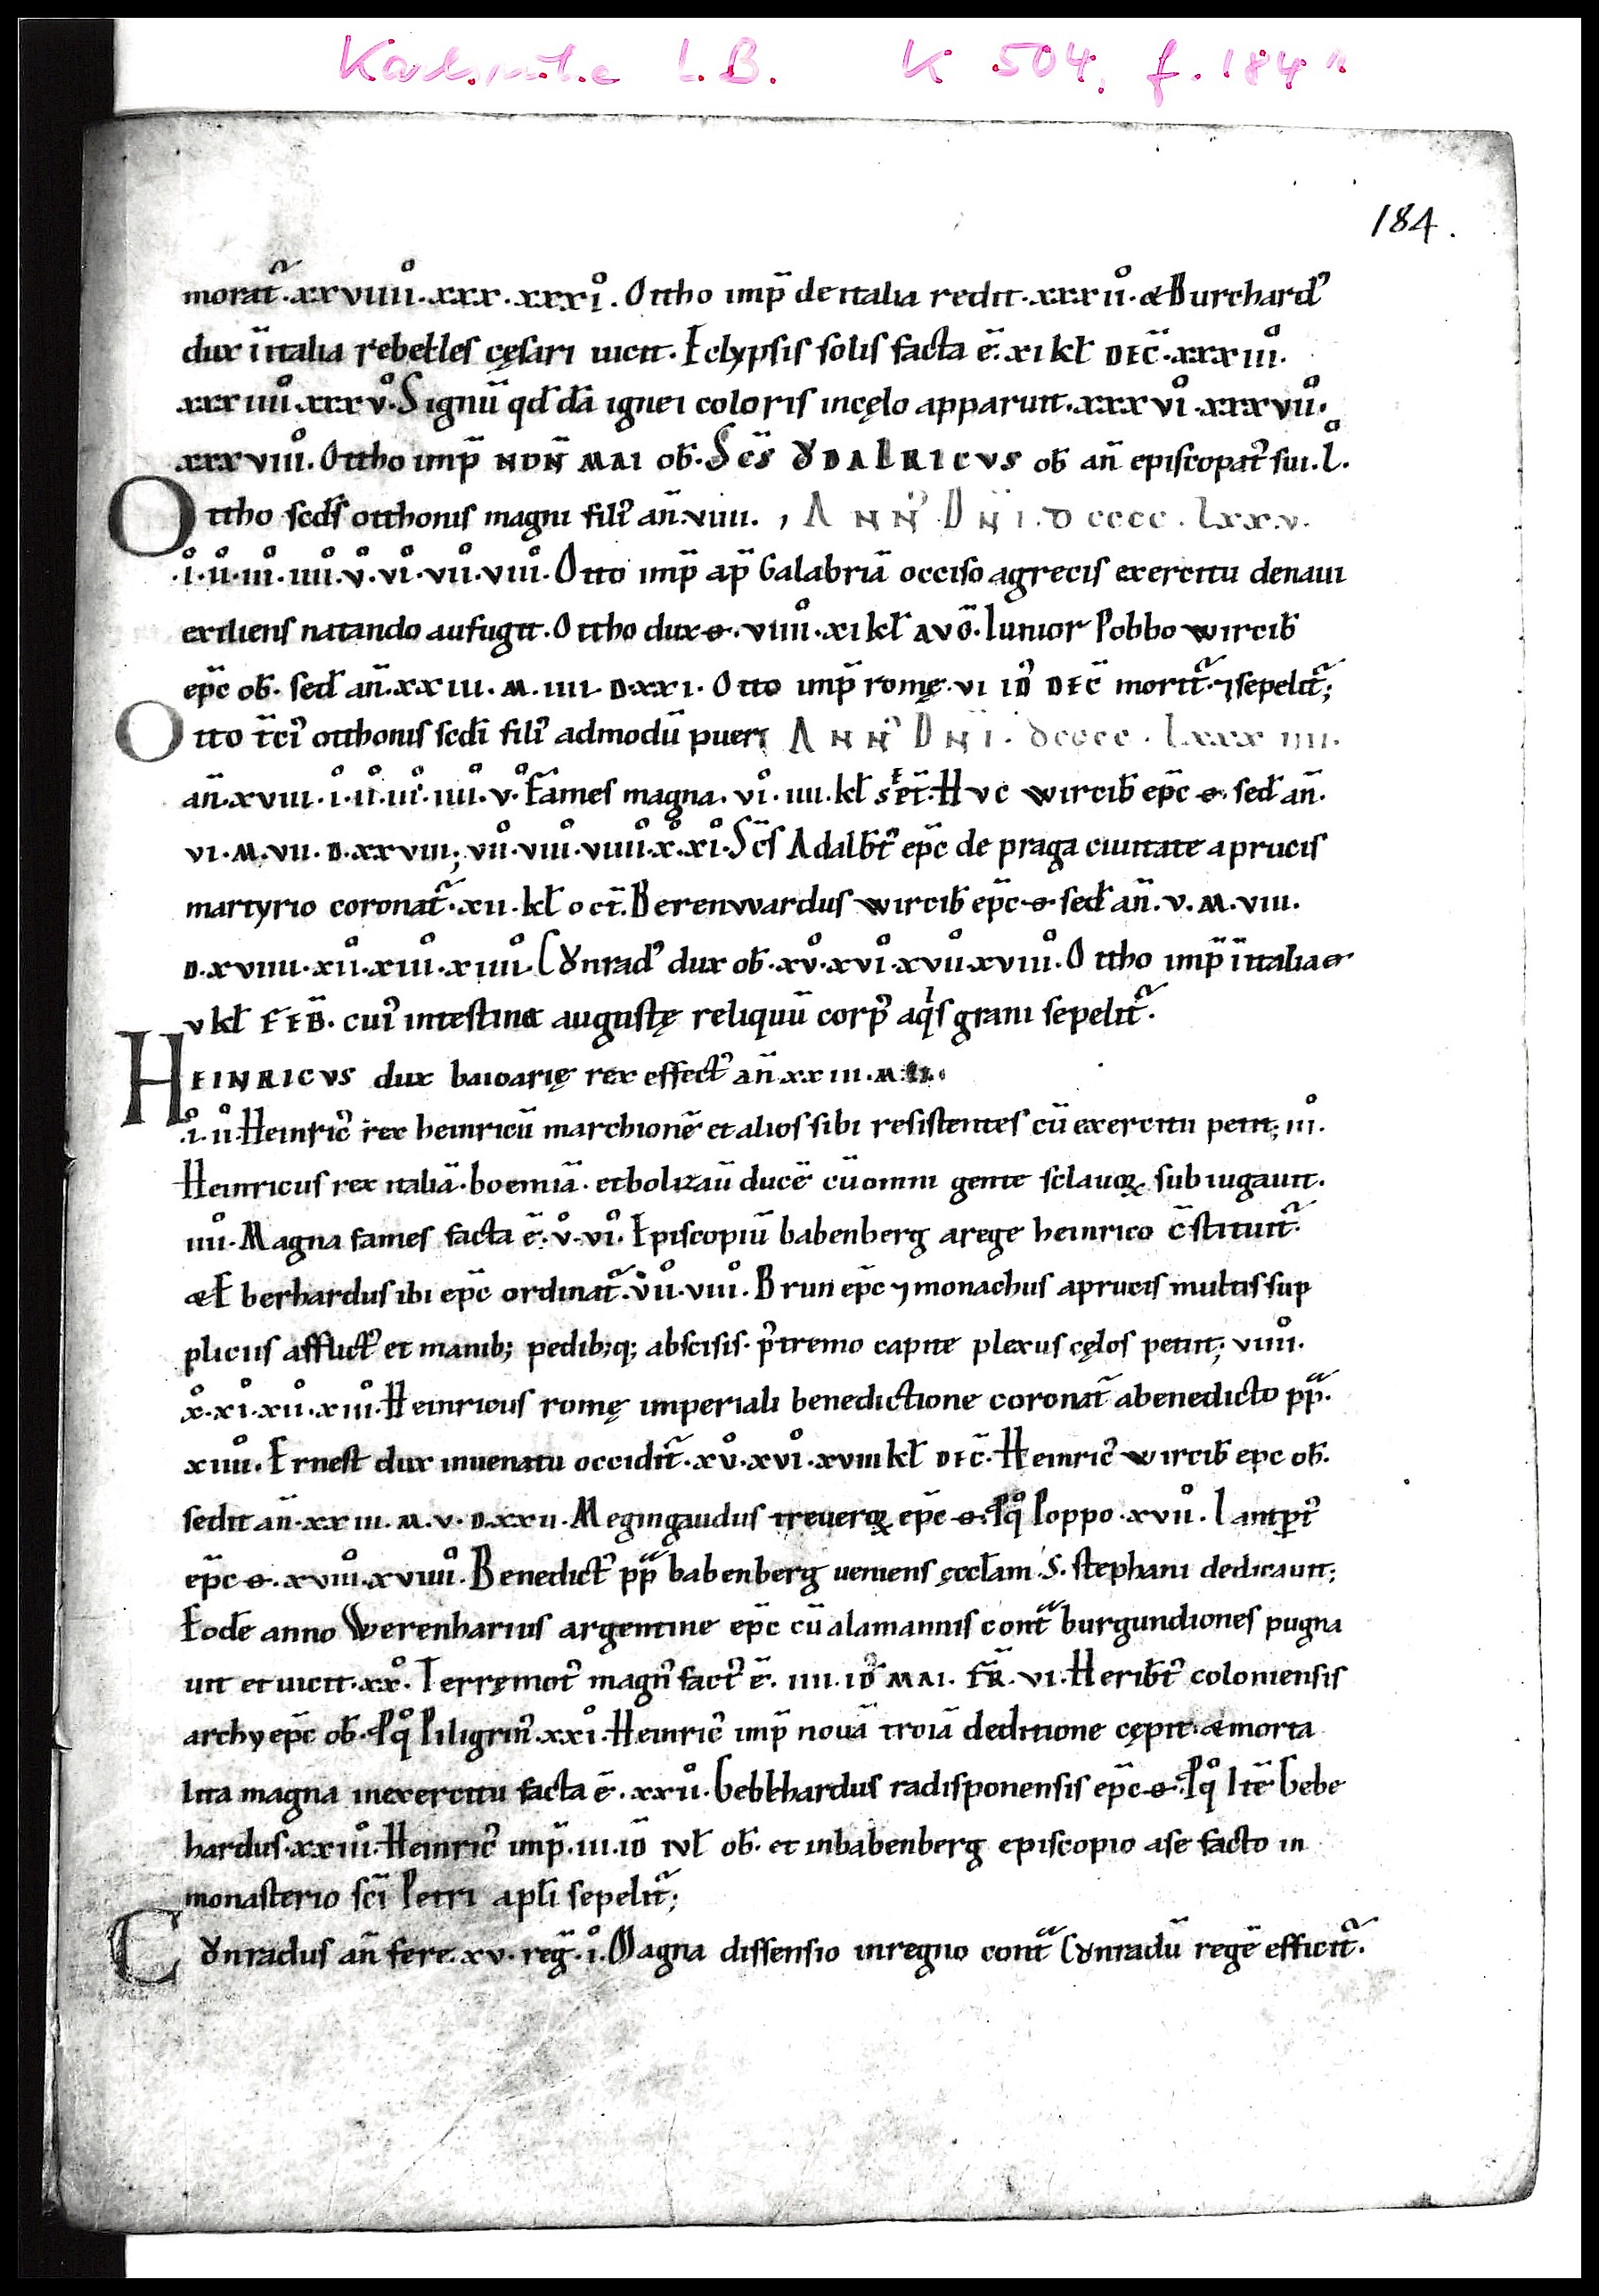 Karlsruhe L.B. K 504, f. 184r
184.
morat᷑·xxviiii·xxx·xxxi̊. Ottho imp̄ deitalia redit·xxxii̊·& Burchard᾿
dux īitalia rebelles cęsari uicit. Eclypsis solis facta ē. xi kł DEC̄·xxxiii̊.
xxxiiii̊·xxxv̊·Signū qd̄dā ignei coloris incęlo apparuit·xxxvi̊·xxxvii̊·
xxxviii̊. Ottho imp̄ NON̄ MAI ob̄. Sc̄s ȢDALRICVS ob̄ an̄ episcopat᾿ sui·l̊.
Ottho sc̄ds otthonis magni fili᾿ an̄·viiii. , ANN᾿ DN̄I. Dcccc. lxx.v.
·i̊·ii̊·iii̊·iiii̊·v̊·vi̊·vii̊·viii̊·Otto imp̄ ap̄ Galabriā occiso agrecis exercitu denaui
exiliens natando aufugit. Ottho dux o·viiii̊·xi kł AVḠ. Iunior Pobbo wircib̄
ep̄c ob̄. sed̄ an̄·xxiii·M·iiii·D·xxi. Otto imp̄ romę·vi ID᾿ DEC̄ morit᷑·⁊sepelit᷑;
Otto t̄ci᾿ otthonis sc̄di fili᾿ admodū puer ANN᾿ DN̄I. dcccc. lxxxiiii.
an̄·xviii·i̊·ii̊·iii̊·iiii̊·v̊·Fames magna. vi̊·iiii·kł SEET̄·HVC wircib̄ ep̄c o·sed̄ an̄.
vi·M·vii·D·xxviii; vii̊·viii̊·viiii̊·x̊·xi̊·Sc̄s Adalb̄t᾿ ep̄c de praga ciuitate aprucis
martyrio coronat᷑·xii·kł OCT̄. Berenvvardus wircib̄ ep̄c o sed̄ an̄·v·M·viii.
D·xviiii·xii̊·xiii̊·xiiii̊·CȢnrad᾿ dux ob̄·xv̊·xvi̊·xvii̊·xviii̊. Ottho imp̄ īitalia o
v kł FEB̄. cui᾿ intestina augustę reliquū corp᾿ aqⁱs grani sepelit᷑.
HEINRICVS dux baioarię rex effect᾿ an̄·xxiii·M·ii·
·i̊·ii̊·Heinric᾿ rex heinricū marchionē et alios sibi resistentes cū exercitu petit; iii̊.
Heinricus rex italiā·boemiā·etbolizauū ducē cū omni gente sclauoꝝ subiugauit.
iiii̊·Magna fames facta ē·v̊·vi̊·Episcopiū babenberg arege heinrico c̄stituit᷑.
&Eberhardus ibi ep̄c ordinat᷑·vii̊·viii̊·Brun ep̄c ⁊ monachus aprucis multis sup
pliciis afflict᾿ et manib; pedib;q; abscisis·p᾿tremo capite plexus cęlos petit; viiii̊.
x̊·xi̊·xii̊·xiii̊·Heinricus romę imperiali benedictione coronat᷑ abenedicto pp̄.
xiiii̊·Ernest dux inuenatu occidit᷑·xv̊·xvi̊·xviii kł DEC̄·Heinric᾿ wircib̄ epc ob̄.
sedit an̄·xxiii·M·v·D·xxii·Megingaudus treueroꝝ ep̄c o·P᾿q̊ Poppo·xvii̊. Lantp̱t᾿
ep̄c o·xviii̊·xviiii̊·Benedict᾿ pp̄ babenberg ueniens ęccłam S. stephani dedicauit;
Eodē anno Werenharius argentine ep̄c cū alamannis cont᷑ burgundiones pugna
uit et uicit·xx̊. Terręmot᾿ magn᾿ fact᾿ ē. iiii·ID᾿ MAI. FR̄·VI·Herib̄t᾿ coloniensis
archyep̄c ob̄·P᾿q̊ Piligrin᾿·xxi̊·Heinric᾿ imp̄ nouā troiā deditione cępit·&morta
lita magna inexercitu facta ē·xxii̊·Gebkhardus radisponensis ep̄c o·P᾿q̊ Itē Gebe
hardus·xxiii̊·Heinric᾿ imp̄·iii·ID̄ IVŁ ob̄·et inbabenberg episcopio ase facto in
monasterio sc̄i Petri apłi sepelit᷑;
CȢnradus an̄ fere·xv·reg̅·i̊·Magna dissensio inregno cont᷑ CȢnradū regē efficit᷑.